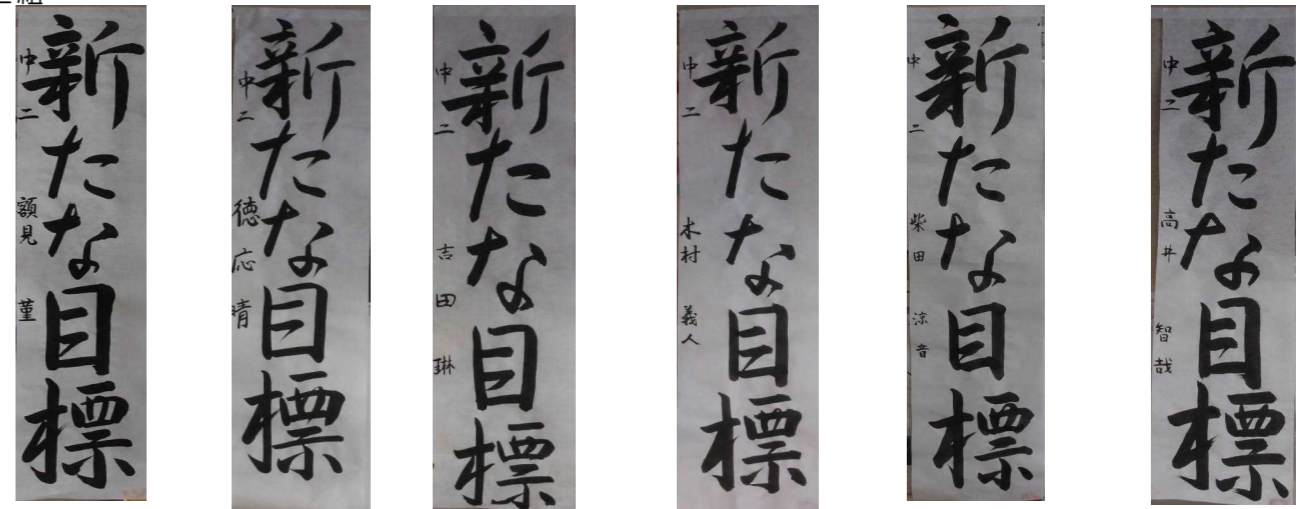 新たな目標
中二 額見 菫
新たな目標
中二 徳応 晴
新たな目標
中二 吉田 琳
新たな目標
中二 木村 義人
新たな目標
中二 柴田 涼音
新たな目標
中二 高井 智哉